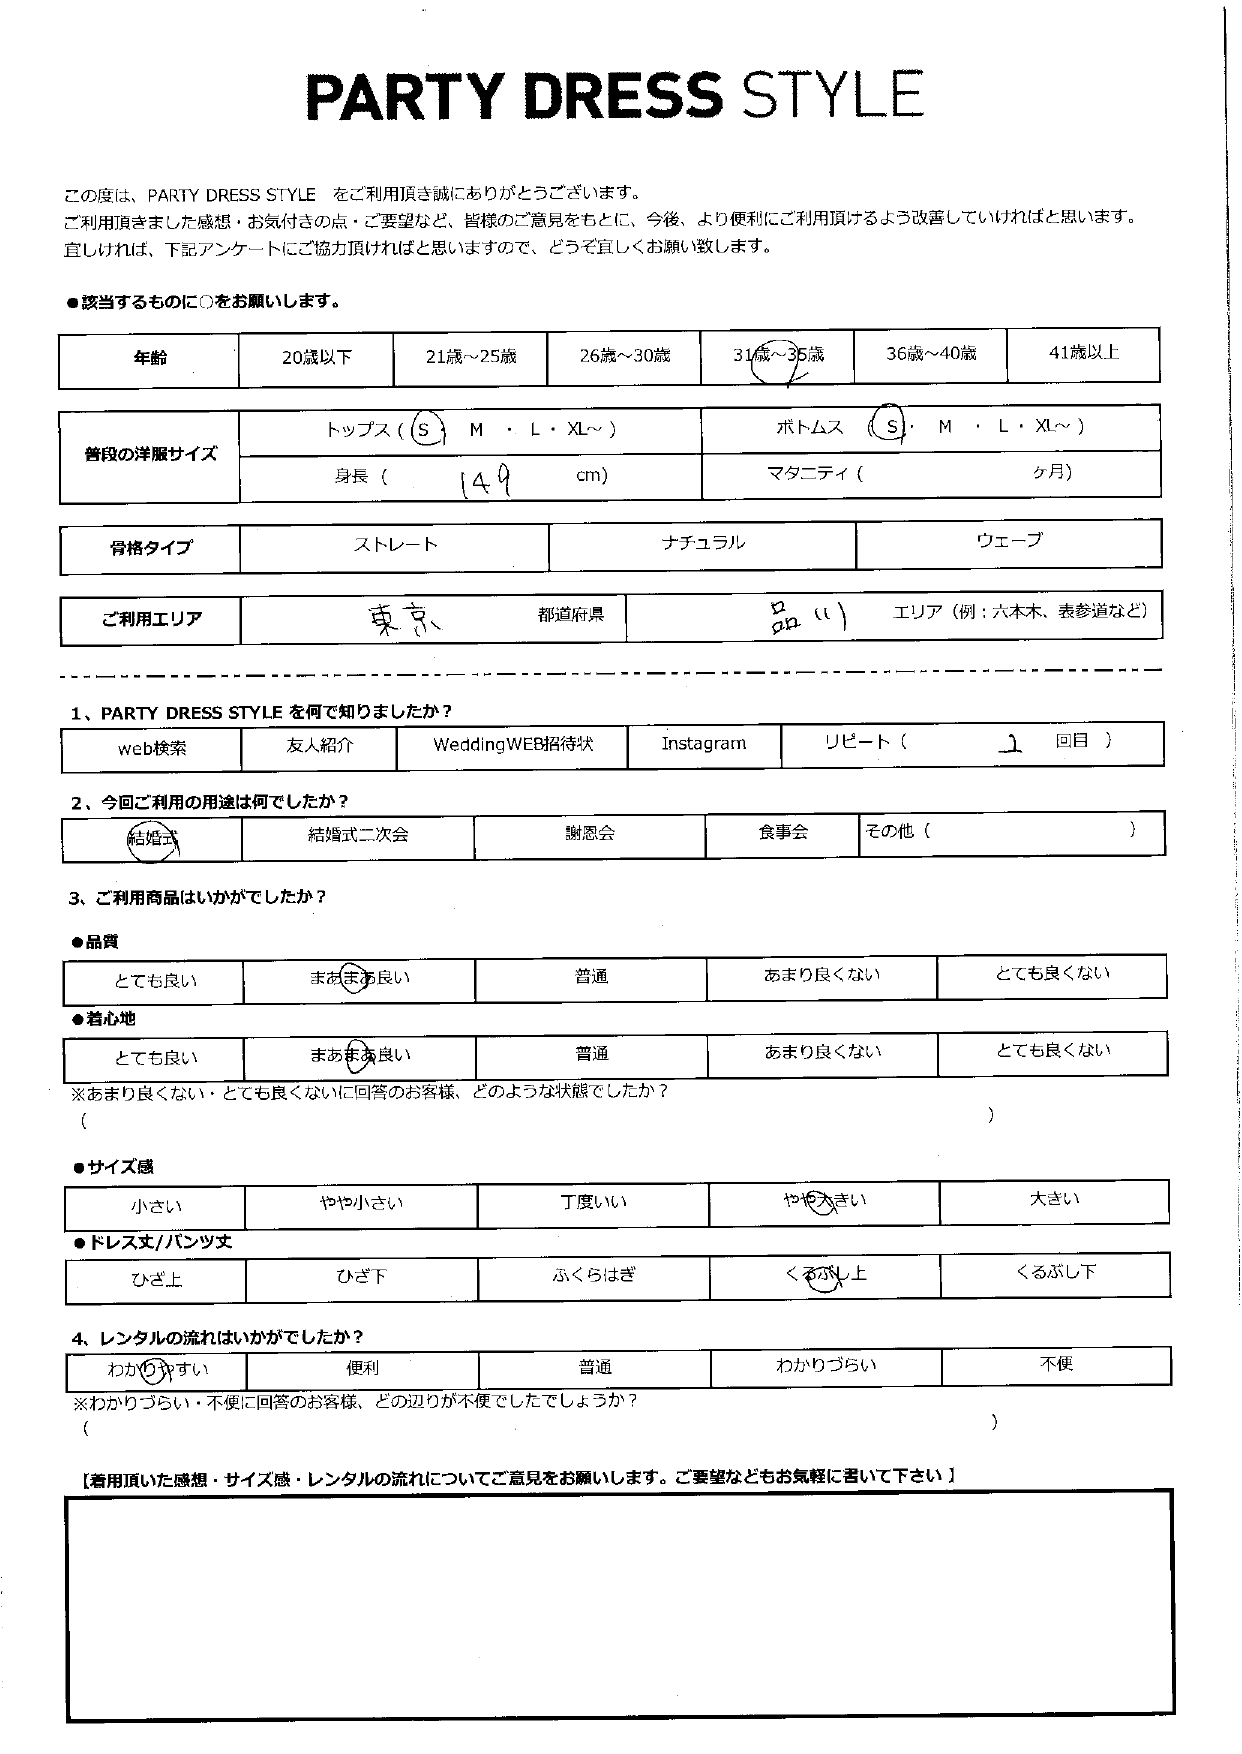 PARTY DRESS STYLE
この度は、PARTY DRESS STYLE をご利用頂き誠にありがとうございます。
ご利用頂きました感想・お気付きの点・ご要望など、皆様のご意見をもとに、今後、より便利にご利用頂けるよう改善していければと思います。
宜しければ、下記アンケートにご協力頂ければと思いますので、どうぞ宜しくお願い致します。
●該当するものに○をお願いします。
年齢 20歳以下 21歳～25歳 26歳～30歳 31歳～35歳 36歳～40歳 41歳以上
普段の洋服サイズ トップス ( S ・ M ・ L・ XL～ ) ボトムス ( S ・ M ・ L・ XL～ )
身長 ( 149 cm) マタニティ ( ヶ月)
骨格タイプ ストレート ナチュラル ウェーブ
ご利用エリア 東京 都道府県 品川 エリア（例：六本木、表参道など）
1、PARTY DRESS STYLE を何で知りましたか？
web検索 友人紹介 WeddingWEB招待状 Instagram リピート（ 1 回目 ）
2、今回ご利用の用途は何でしたか？
結婚式 結婚式二次会 謝恩会 食事会 その他（ ）
3、ご利用商品はいかがでしたか？
●品質
とても良い まあまあ良い 普通 あまり良くない とても良くない
●着心地
とても良い まあまあ良い 普通 あまり良くない とても良くない
※あまり良くない・とても良くないに回答のお客様、どのような状態でしたか？
（ ）
●サイズ感
小さい やや小さい 丁度いい やや大きい 大きい
●ドレス丈/パンツ丈
ひざ上 ひざ下 ふくらはぎ くるぶし上 くるぶし下
4、レンタルの流れはいかがでしたか？
わかりやすい 便利 普通 わかりづらい 不便
※わかりづらい・不便に回答のお客様、どの辺りが不便でしたでしょうか？
（ ）
【着用頂いた感想・サイズ感・レンタルの流れについてご意見をお願いします。ご要望などもお気軽に書いて下さい 】